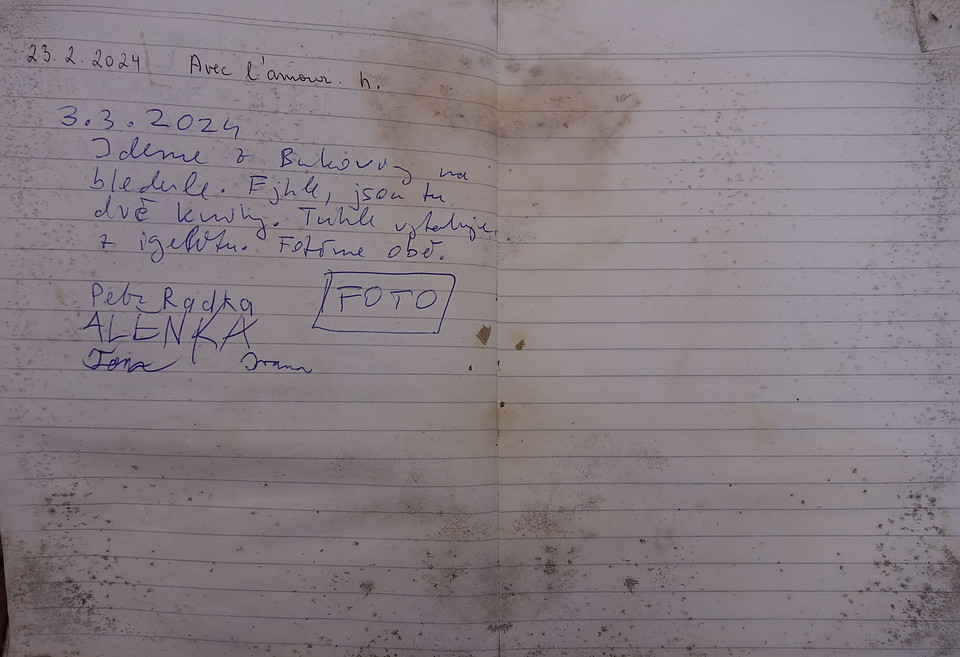 23.2.2024 Avec l'amour. h.
3.3.2024
Jdeme z Bukoviny na
bledule. Ejhle, jsou tu
dvě knihy. Tuhle vytahuje
z igelitu. Fotíme obě.
Petr Radka
FOTO
ALENKA
Jana Ivana